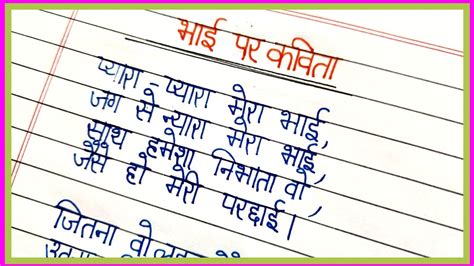 भाई पर कविता
प्यारा-प्यारा मेरा भाई,
जग से न्यारा मेरा भाई,
साथ हमेशा निभाता वो,
जैसे हो मेरी परछाई।
जितना वो